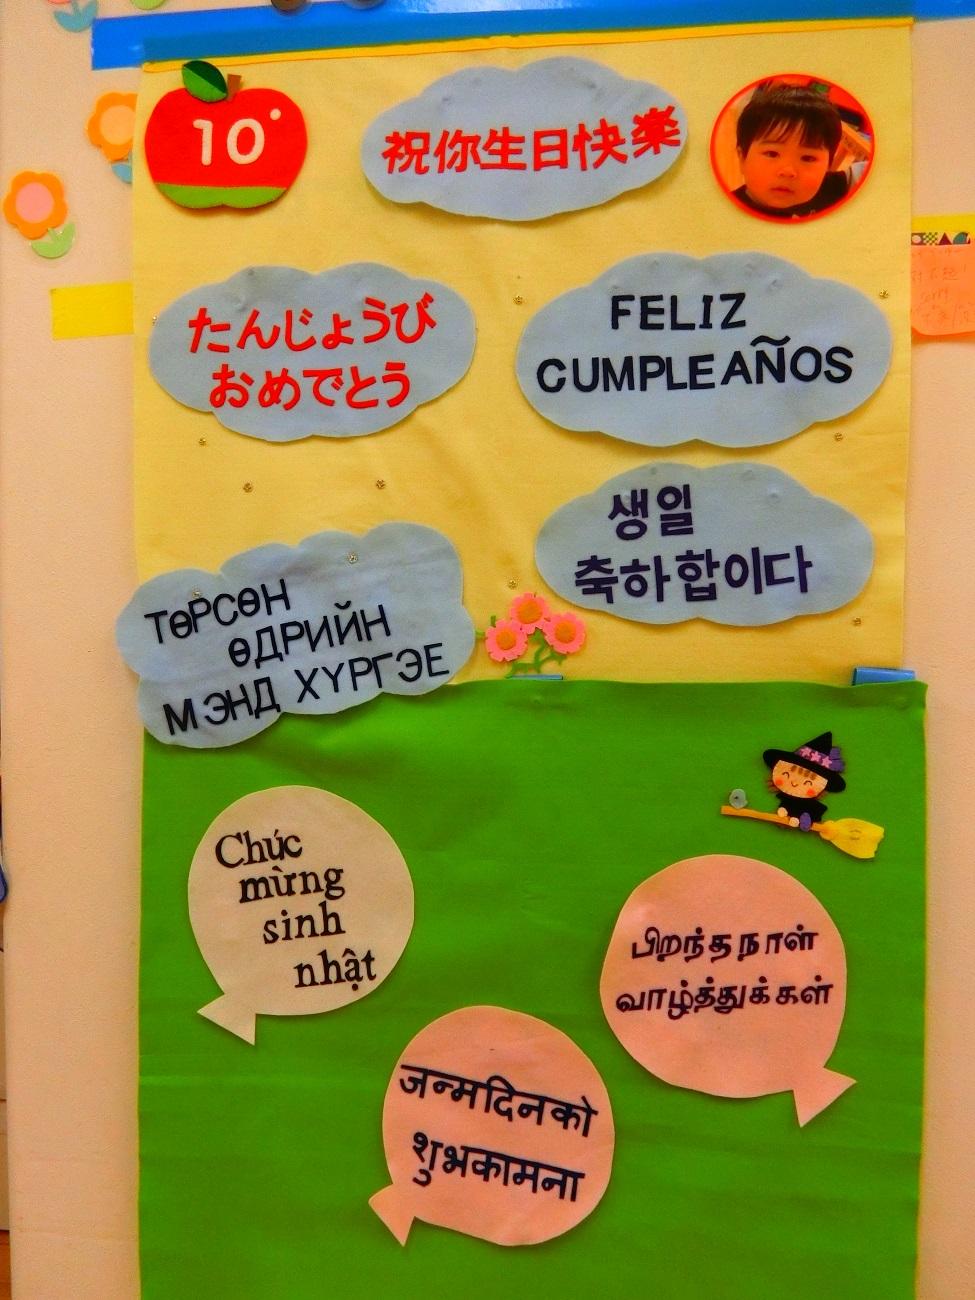 10
祝你生日快樂
たんじょうび
おめでとう
FELIZ
CUMPLEAÑOS
생일
축하합이다
ТӨРСӨН
ӨДРИЙН
МЭНД ХҮРГЭЕ
Chúc
mừng
sinh
nhật
பிறந்த நாள்
வாழ்த்துக்கள்
जन्मदिनको
शुभकामना